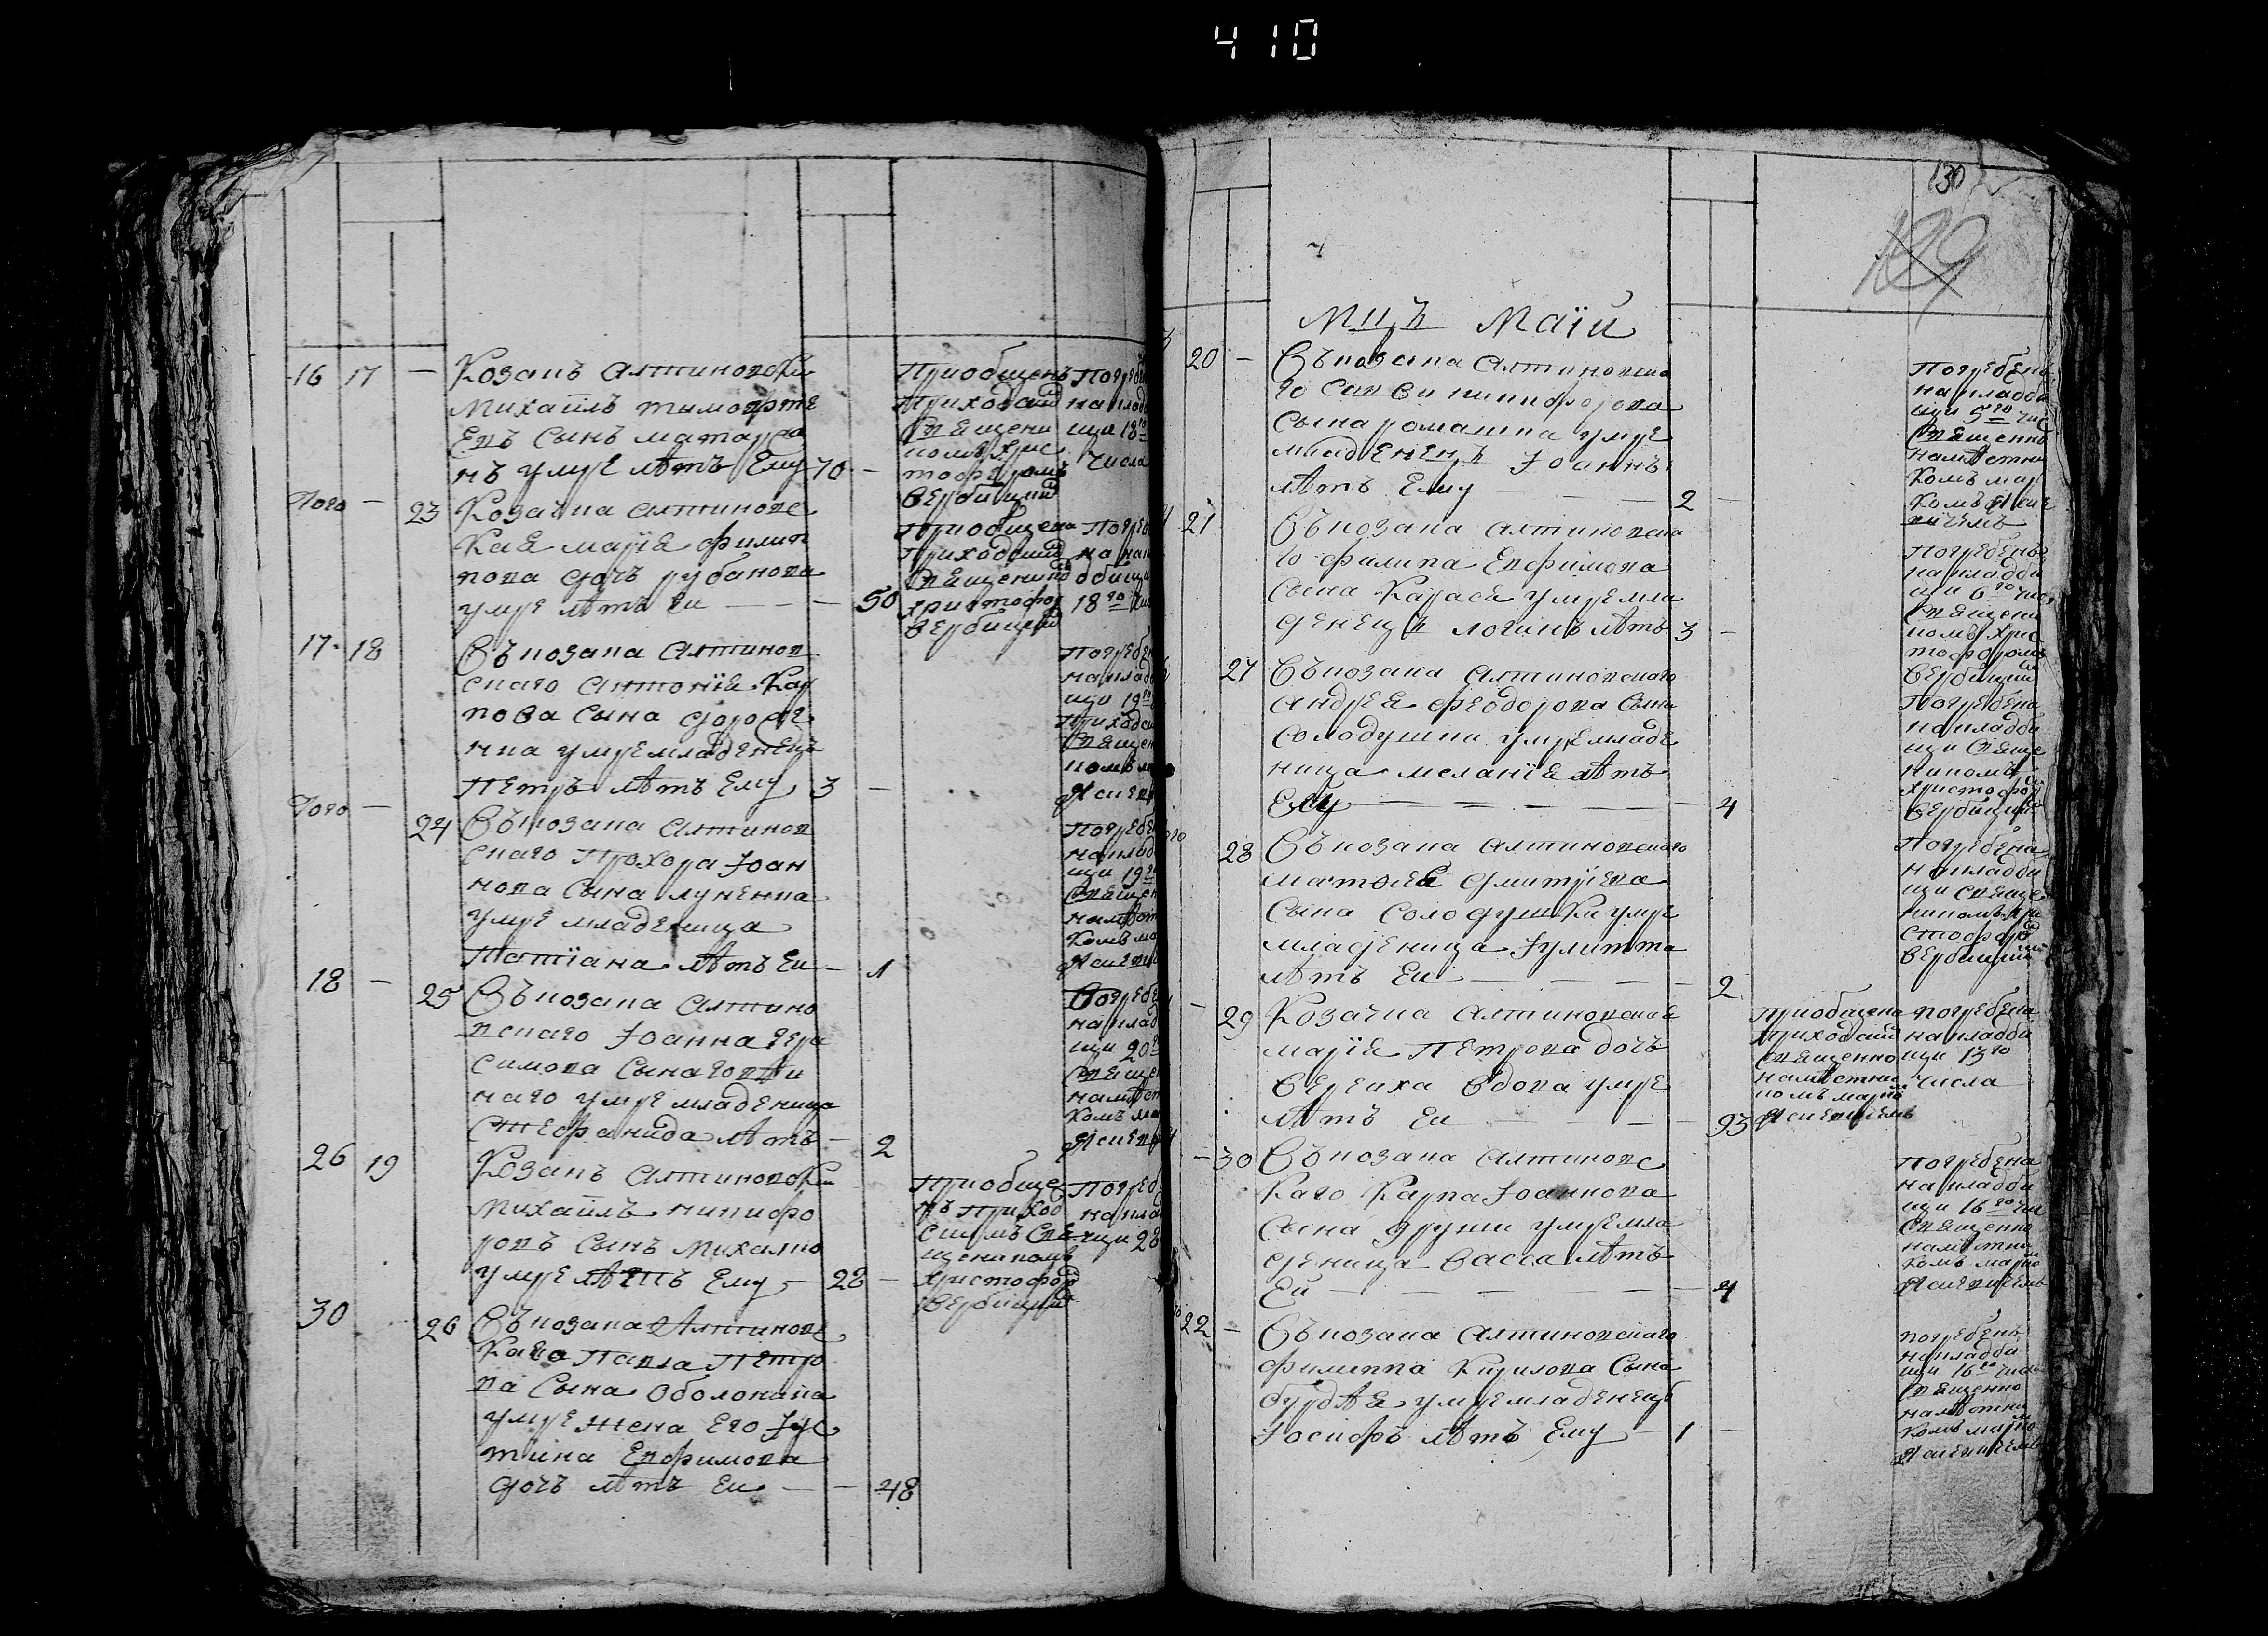 410
16 17 — Козакъ Алтиновски
Михаилъ тимофте
евъ сынъ
нъ умре лѣтъ Ему 70 —
Приобщенъ
Приходским
Священи
комъ Хрис
тофоромъ
Вербицким
на кладб
щи 18го
числа
Того — 23 Козачка алтиновс
кая марія филип
пова дочъ рубанова
умре лѣтъ Еи — — — 50
Приобщена
Приходским
Священико
христофор
Вербицким
18го
17 18 Въ козака Алтинов
скаго Антонія Кар
пова Сына
нка умре младенецъ
Петръ лѣтъ Ему 3 —
на кладб
щи 19го
Того — 24 Въ козака Алтинов
скаго Прохора Іоан
нова Сына луненка
умре младеница
Татіана лѣтъ Еи — 1
щи 19го
18 — 25 Въ козака Алтино
вскаго Іоанна Гера
симова Сына
наго умре младеница
Стефанида лѣтъ — 2
щи 20
26 19 Козакъ Алтиновски
Михаилъ никифо
ровъ Сынъ Михалко
умре лѣтъ Ему — 28 —
Приобще
нъ Приход
скимъ Свя
щеникомъ
Христофор
Вербицким
на клад
щи 28
30 26 Въ козака Алтиновс
каго Павла Петро
ва Сына Оболоника
умре жена Его Іус
тина Евфимова
дочъ лѣтъ Еи — — 48
130
129
Мцъ Маій
20 — Въ козака Алтиновска
го Саввы никифорова
Сына ромашка умре
младенецъ Іоаннъ
лѣтъ Ему — — — 2 —
Погребенъ
на кладби
щи 5го чис
Священно
намѣстни
комъ
21 Въ козака Алтиновска
го филипа Евфимова
Сына Карася умре мла
денецъ логинъ лѣтъ 3 —
Погребенъ
на кладби
щи 6го чис
Священи
комъ Хрис
тофоромъ
Вербицким
27 Въ козака Алтиновскаго
Андрея феодорова Сына
Солодушки умре младе
ница меланія лѣтъ
Ему — — — — — — 4
Погребена
на кладби
щи Свяще
никомъ
Христофор
Вербицким
28 Въ козака Алтиновскаго
матфея Дмитріева
Сына Солодушки умре
младеница Іулитта
лѣтъ Еи — — — — 2
Погребена
на кладби
щи Свяще
никомъ Хри
стофор
Вербицким
— 29 Козачка Алтиновская
марія Петрова дочъ
Вереиха вдова умре
лѣтъ Еи — — — — 93
Приобщена
Приходским
Священно
намѣстни
комъ
погребена
на кладби
щи 13го
числа
— 30 Въ козака Алтиновс
каго Карпа Іоаннова
Сына груши умре мла
деница Васса лѣтъ
Ей — — — — — — 4
Погребена
на кладби
щи 16го чи
Священно
намѣстни
комъ
22 — Въ козака Алтиновскаго
филиппа Кирилова Сына
бурдѣя умре младенецъ
Іосифъ лѣтъ Ему — 1 —
погребенъ
на кладби
щи 16го
Священно
намѣстни
комъ